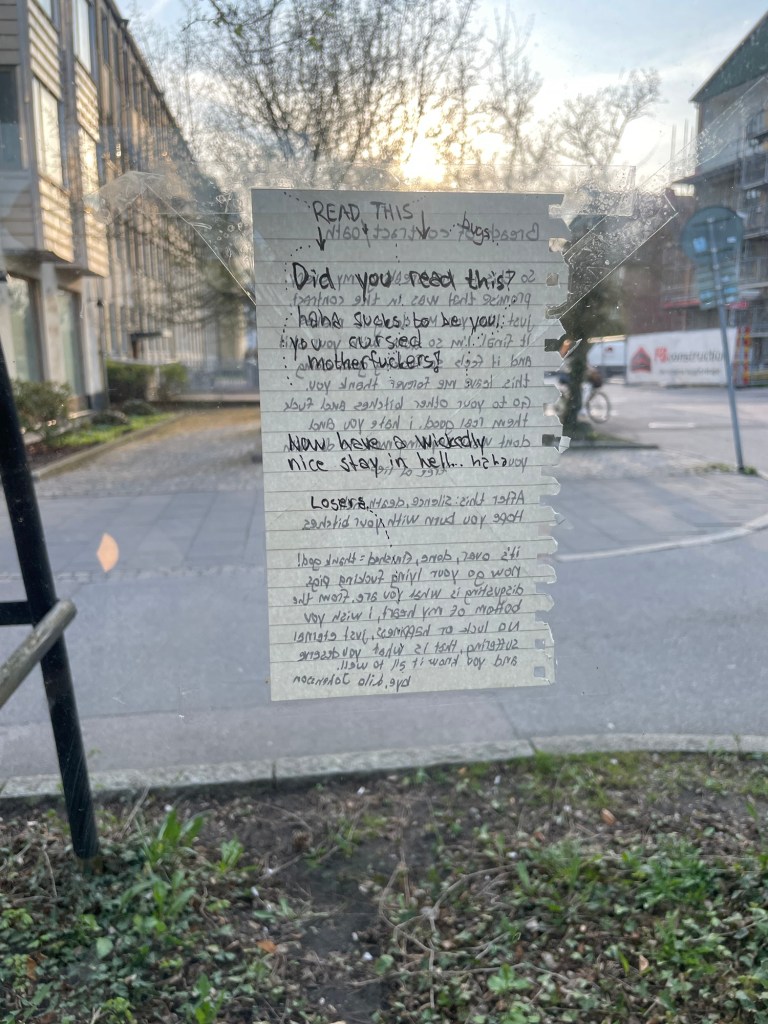 READ THIS
Did you read this?
haha sucks to be you
you cursed
motherfuckers!
Now have a wickedly
nice stay in hell... haha
Losers
Breach of contract/oath
promise that was in the contract
just
it final. I'm so
And it feels
this leave me forever thank you
Go to your other bitches And fuck
them real good. i hate you and
dont
you
After this: silence, death,
Hope you burn with your bitches
it's over, done, finished = thank god!
now go your lying fucking pigs
disgusting is what you are. From the
bottom of my heart, I wish you
No luck or happiness, just eternal
suffering, that is what you deserve
and you know it all to well.
bye, Lilo
construction